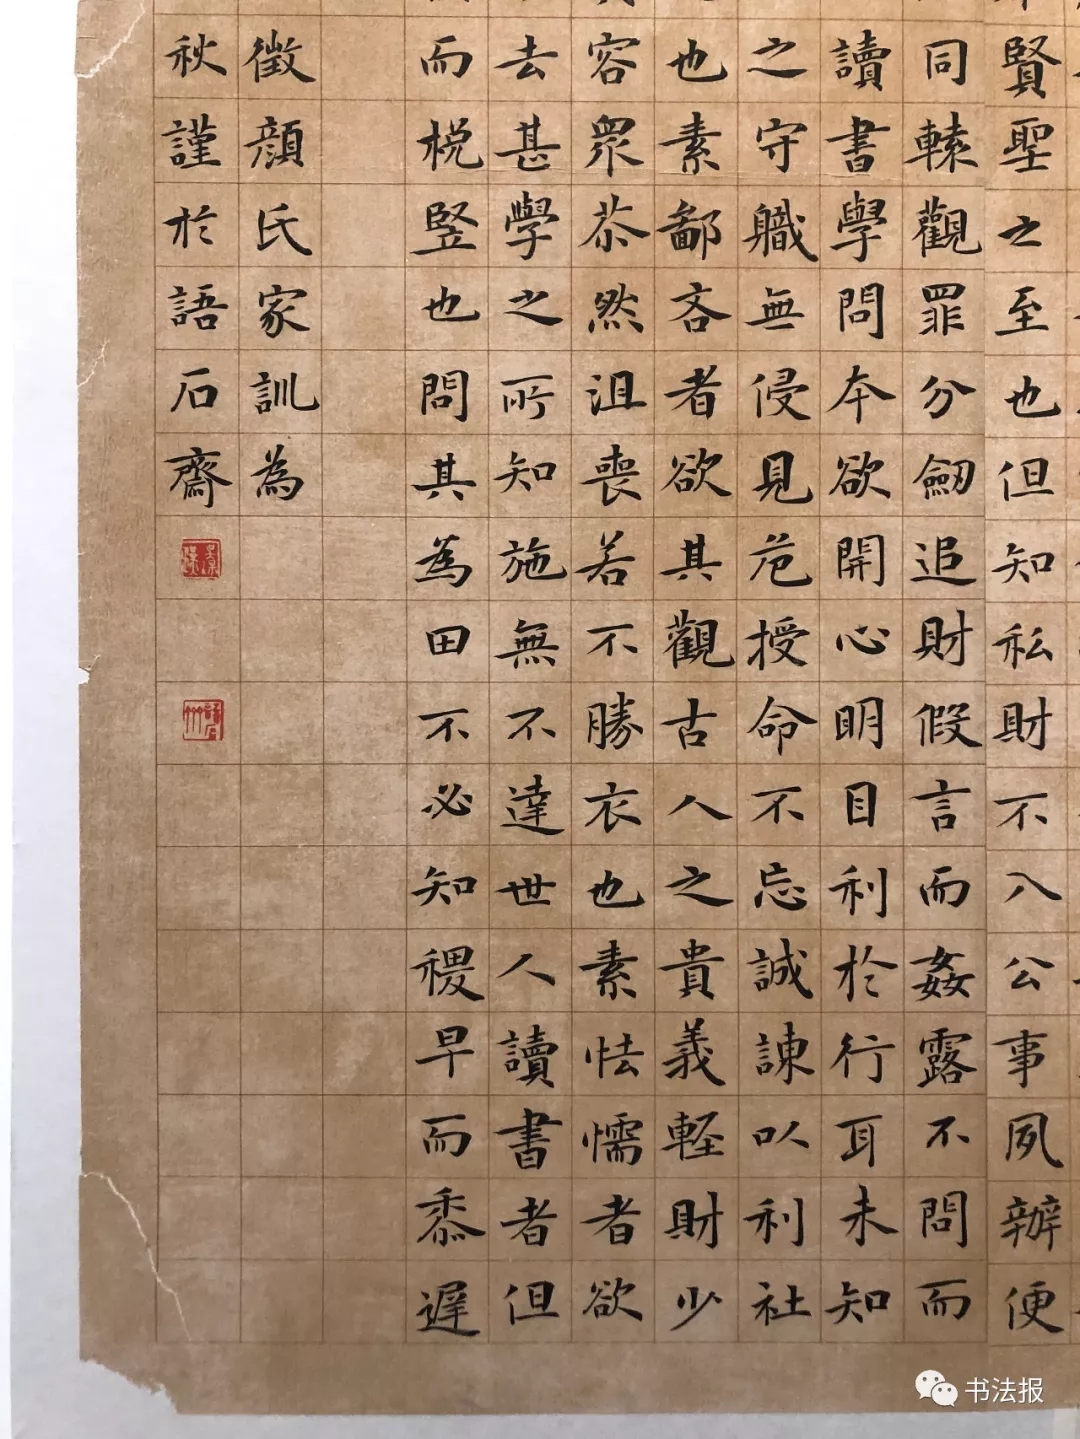 賢聖之至也但知私財不入公事夙辦便
同轅觀罪分劒追財假言而姦露不問而
讀書學問本欲開心明目利於行耳未知
之守職無侵見危授命不忘誠諫以利社
也素鄙吝者欲其觀古人之貴義輕財少
容眾恭然沮喪若不勝衣也素怯懦者欲
去甚學之所知施無不達世人讀書者但
而梲豎也問其為田不必知稷早而黍遲
徵顏氏家訓為
秋謹於語石齋
书法报